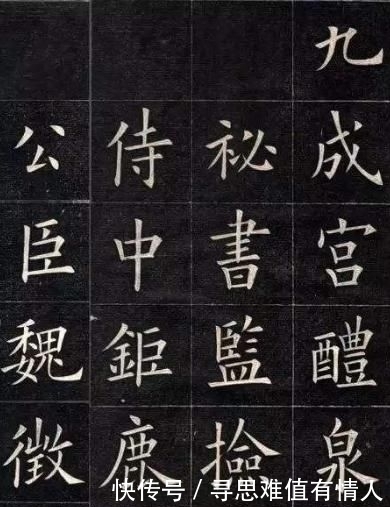 九成宮醴泉
祕書監撿
侍中鉅鹿
公臣魏徵
快传号 / 寻思难值有情人